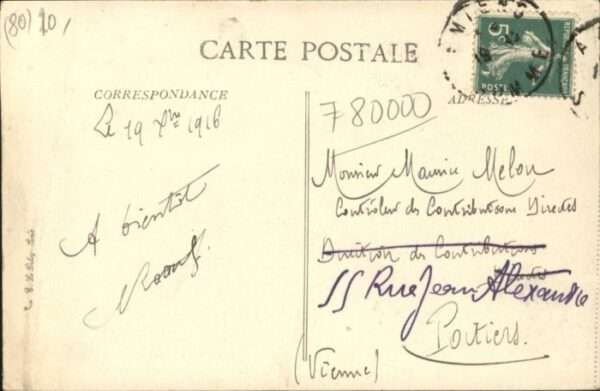 (80) 10,
CARTE POSTALE
CORRESPONDANCE
ADRESSE
5c
POSTES
AMIENS
SOMME
Le 19 Xbre 1916
A bientôt
Raoul
780000
Monsieur Maurice Melon
Contrôleur des Contributions Directes
Direction des Contributions
Directes
55 Rue Jean Alexandre
Poitiers.
(Vienne)